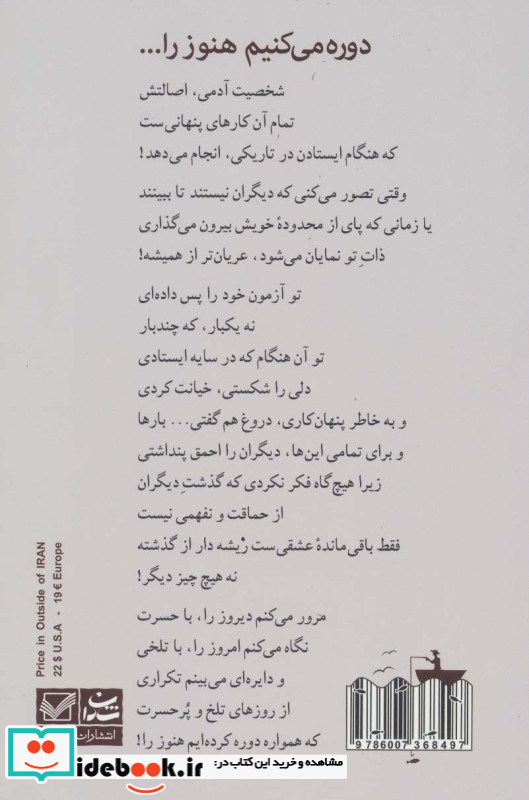 دوره می‌کنیم هنوز را...
شخصیت آدمی، اصالتش
تمام آن کارهای پنهانی‌ست
که هنگام ایستادن در تاریکی، انجام می‌دهد!
وقتی تصور می‌کنی که دیگران نیستند تا ببینند
یا زمانی که پای از محدودهٔ خویش بیرون می‌گذاری
ذاتِ تو نمایان می‌شود، عریان‌تر از همیشه!
تو آزمون خود را پس داده‌ای
نه یکبار، که چندبار
تو آن هنگام که در سایه ایستادی
دلی را شکستی، خیانت کردی
و به خاطر پنهان‌کاری، دروغ هم گفتی... بارها
و برای تمامی این‌ها، دیگران را احمق پنداشتی
زیرا هیچ‌گاه فکر نکردی که گذشتِ دیگران
از حماقت و نفهمی نیست
فقط باقی‌ماندهٔ عشقی‌ست ریشه دار از گذشته
نه هیچ چیز دیگر!
مرور می‌کنم دیروز را، با حسرت
نگاه می‌کنم امروز را، با تلخی
و دایره‌ای می‌بینم تکراری
از روزهای تلخ و پُرحسرت
که همواره دوره کرده‌ایم هنوز را!
Price in Outside of IRAN
22 $ U.S.A - 19 € Europe
شادان
انتشارات
9 786007 368497
مشاهده و خرید این کتاب در:
idebook.ir